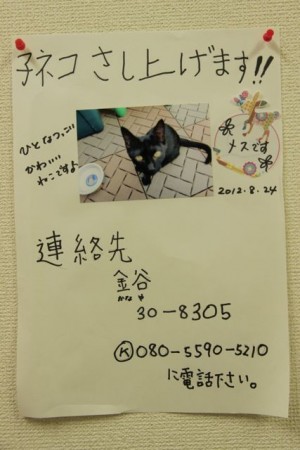 子ネコさし上げます!!
ひとなつっこい
かわいい
ねこですよ
メスです
2012.8.24
連絡先
金谷
かなや
30-8305
Ⓚ080-5590-5210
に電話下さい。